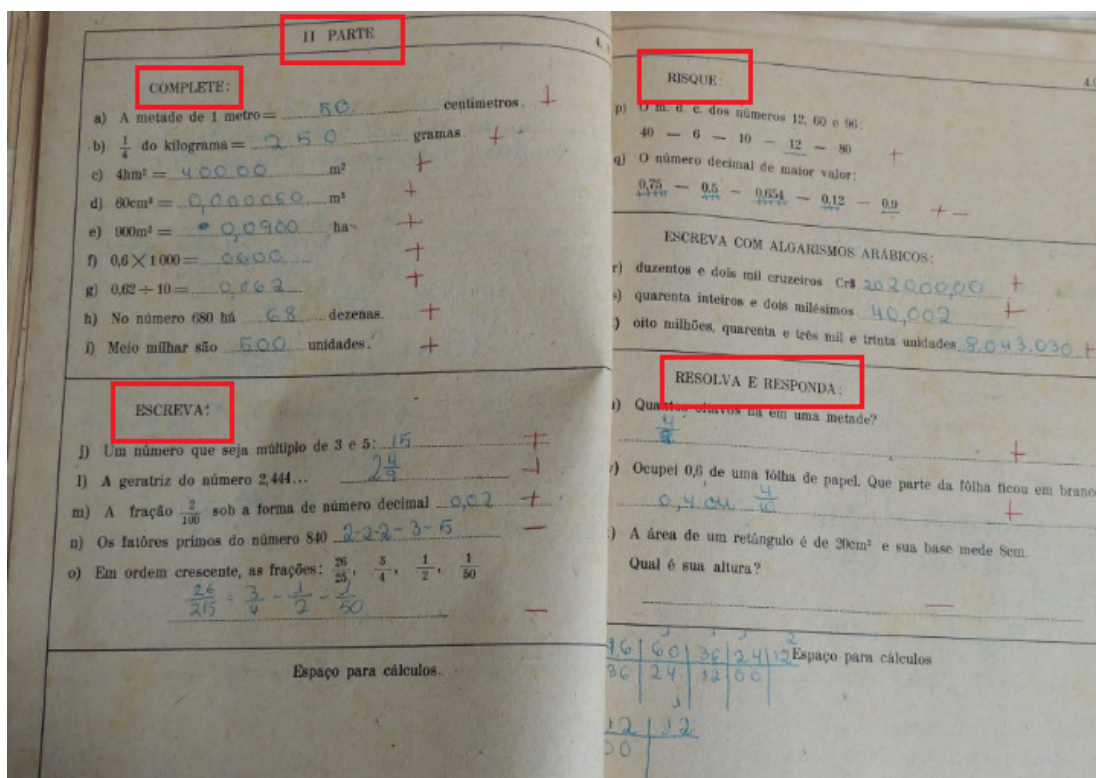 II PARTE
4.
COMPLETE:
a) A metade de 1 metro = 50 centímetros. +
b) 1/4 do kilograma = 250 gramas. +
c) 4hm² = 40000 m² +
d) 60cm³ = 0,000060 m³ +
e) 900m² = 0,0900 ha +
f) 0,6 × 1 000 = 0600 +
g) 0,62 ÷ 10 = 0,062 +
h) No número 680 há 68 dezenas. +
i) Meio milhar são 500 unidades. +
ESCREVA:
j) Um número que seja múltiplo de 3 e 5: 15 +
l) A geratriz do número 2,444... 2 4/9 +
m) A fração 2/100 sob a forma de número decimal 0,02 +
n) Os fatôres primos do número 840 2-2-2-3-5 −
o) Em ordem crescente, as frações: 26/25, 3/4, 1/2, 1/50
26/215 - 3/4 - 1/2 - 1/50 −
Espaço para cálculos.
4.9
RISQUE:
p) O m. d. c. dos números 12, 60 e 96:
40 — 6 — 10 — 12 — 80 +
q) O número decimal de maior valor:
0,75 — 0,5 — 0,654 — 0,12 — 0,9 + −
ESCREVA COM ALGARISMOS ARÁBICOS:
r) duzentos e dois mil cruzeiros Cr$ 202000,00 +
s) quarenta inteiros e dois milésimos 40,002 +
) oito milhões, quarenta e três mil e trinta unidades 8.043.030 +
RESOLVA E RESPONDA:
) Quantos oitavos há em uma metade?
4/8 +
) Ocupei 0,6 de uma fôlha de papel. Que parte da fôlha ficou em branco
0,4 ou 4/10 +
) A área de um retângulo é de 20cm² e sua base mede 8cm.
Qual é sua altura?
−
96 | 60 | 36 | 24 | 12 Espaço para cálculos
36 | 24 | 12 | 00
12 | 12
00